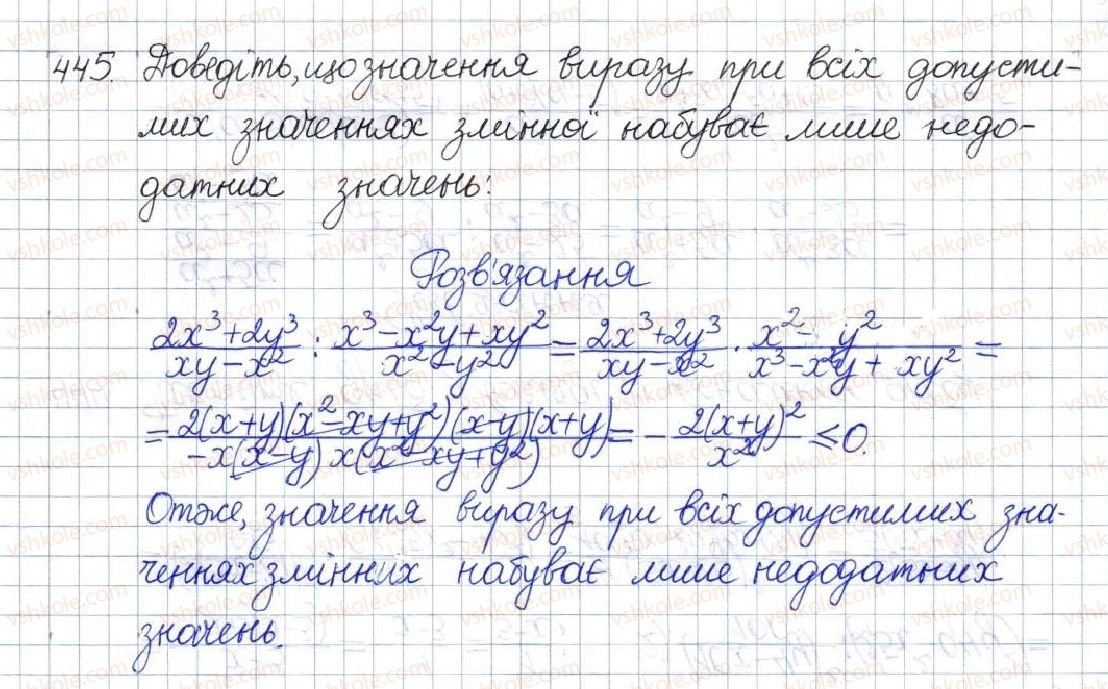 445. Доведіть, що значення виразу при всіх допусти-
мих значеннях змінної набуває лише недо-
датних значень:
Розв'язання
(2x³+2y³)/(xy-x²) : (x³-x²y+xy²)/(x²-y²) = (2x³+2y³)/(xy-x²) · (x²-y²)/(x³-x²y+xy²) =
= (2(x+y)(x²-xy+y²)(x-y)(x+y))/(-x(x-y) x(x²-xy+y²)) = - (2(x+y)²)/(x²) ≤ 0.
Отже, значення виразу при всіх допустимих зна-
ченнях змінних набуває лише недодатних
значень.